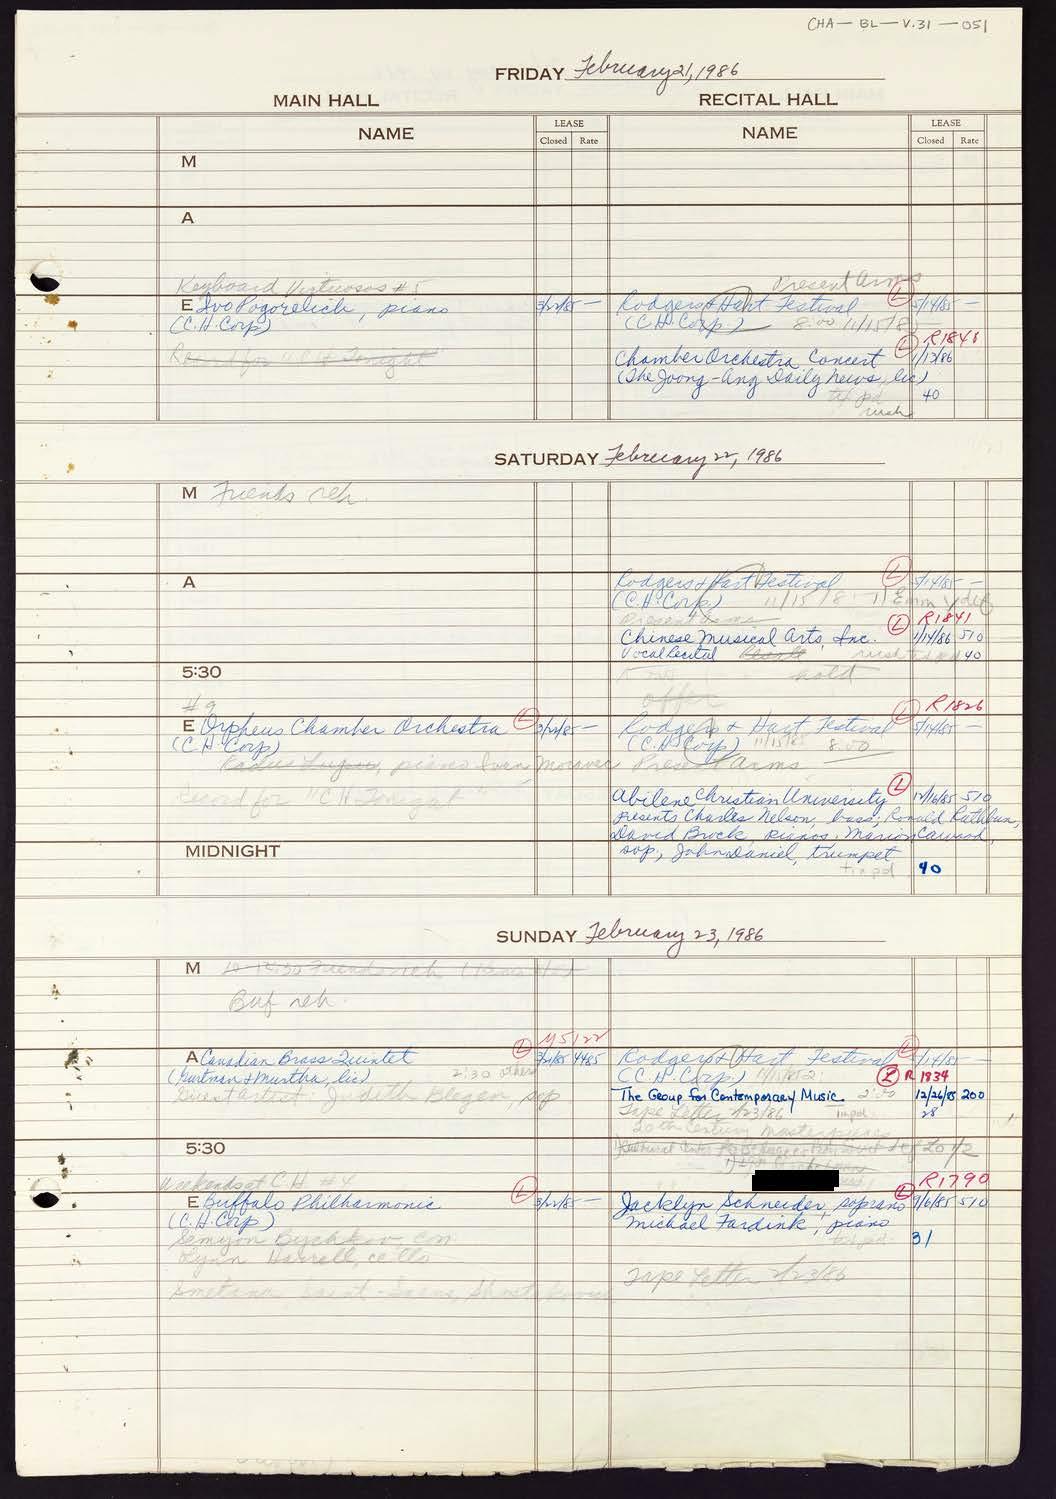 CHA-BL-V.31-051
FRIDAY February 21, 1986
MAIN HALL
RECITAL HALL
NAME
LEASE
Closed Rate
NAME
LEASE
Closed Rate
M
A
Keyboard Virtuosos #5
E Ivo Pogorelich, piano 3/22/85 —
(C.H. Corp)
Record for "C H Tonight"
Present Arms
Rodgers & Hart Festival L 5/14/85 —
(C.H. Corp.) 8:00 11/15/8
L R1846
Chamber Orchestra Concert 1/13/86
(The Joong-Ang Daily News, lic)
40
rush
SATURDAY February 22, 1986
M Friends reh.
A
Rodgers & Hart Festival L 5/14/85 —
(C.H. Corp) 11/15/8
Present Arms
L R1841
Chinese Musical Arts, Inc. 1/14/86 510
Vocal Recital rush 40
5:30
hold
offer
#9
E Orpheus Chamber Orchestra L 3/22/85 —
(C.H. Corp)
Radu Lupu, piano Ivan Moravec
Record for "C H Tonight"
R1826
Rodgers & Hart Festival L 5/14/85 —
(C.H. Corp) 11/15/85 8:00
Present Arms
Abilene Christian University L 12/16/85 510
presents Charles Nelson, bass; Ronald Rathbun,
David Brock, pianos; Marion Cawood,
sop, John Daniel, trumpet
40
MIDNIGHT
SUNDAY February 23, 1986
M Friends reh
Buf reh.
M5122
A Canadian Brass Quintet L 3/21/85 4485
(Gurtman & Murtha, lic) 2:30 others
Guest artist: Judith Blegen, sop
Rodgers & Hart Festival L 5/14/85 —
(C.H. Corp.)
L R 1834
The Group for Contemporary Music 2:00 12/26/85 200
Tape Letter 1/23/86 28
20th Century Masterpieces
5:30
Weekends at C.H. #4
E Buffalo Philharmonic L 3/22/85 —
(C.H. Corp)
Semyon Bychkov, con
Lynn Harrell, cello
Smetana, Saint-Saens, Shostakovich
R1790
Jacklyn Schneider, soprano L 9/6/85 510
Michael Fardink, piano
31
Tape Letter 1/23/86